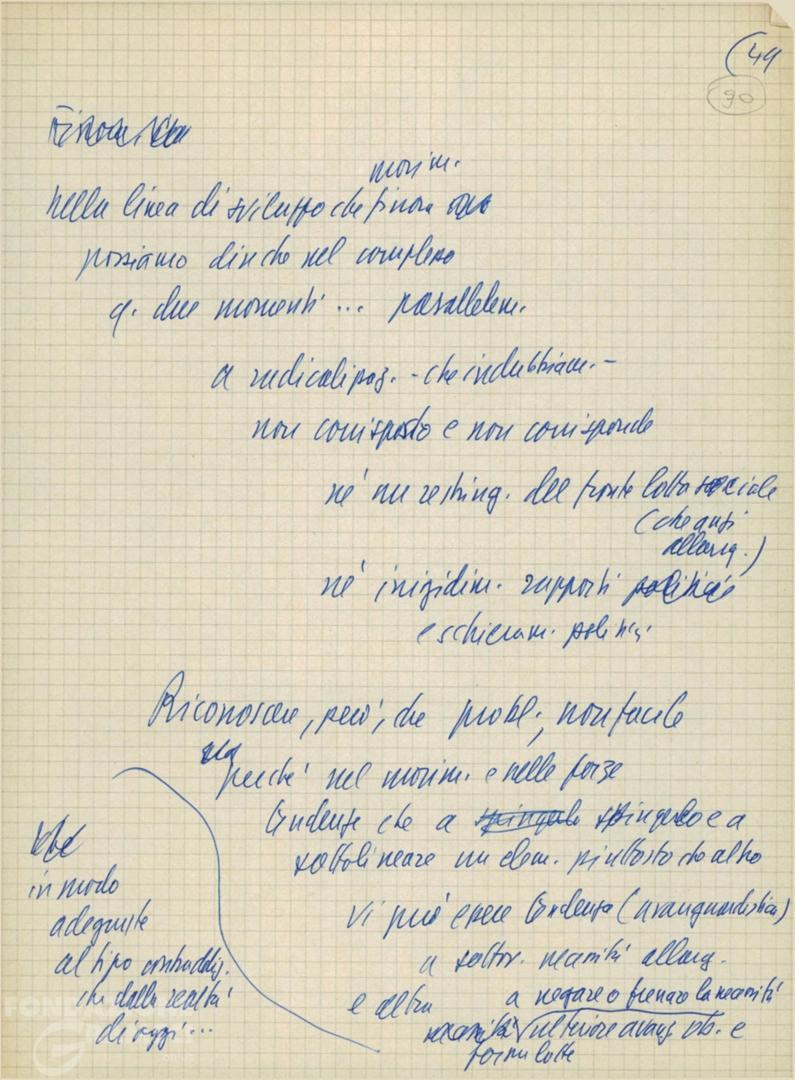 (49
90
movim.
nella linea di sviluppo che finora
possiamo dire che nel complesso
q. due momenti ... parallelam.
a radicalizzaz. - che indubbiam. -
non corrisposto e non corrisponde
né un restring. del fronte lotta sociale
(che anzi
allarg.)
né irrigidim. rapporti politici
e schieram. politici
Riconoscere, però, che probl. non facile
perché nel movim. e nelle forze
tendenze che a spingere e a
sottolineare un elem. piuttosto che altro
vi può essere tendenza (avanguardistica)
a sottov. necessità allarg.
e altra a negare o frenare la necessità
ulteriore avanz. ob. e
forme lotta
in modo
adeguate
al tipo contraddiz.
che dalla realtà
di oggi...